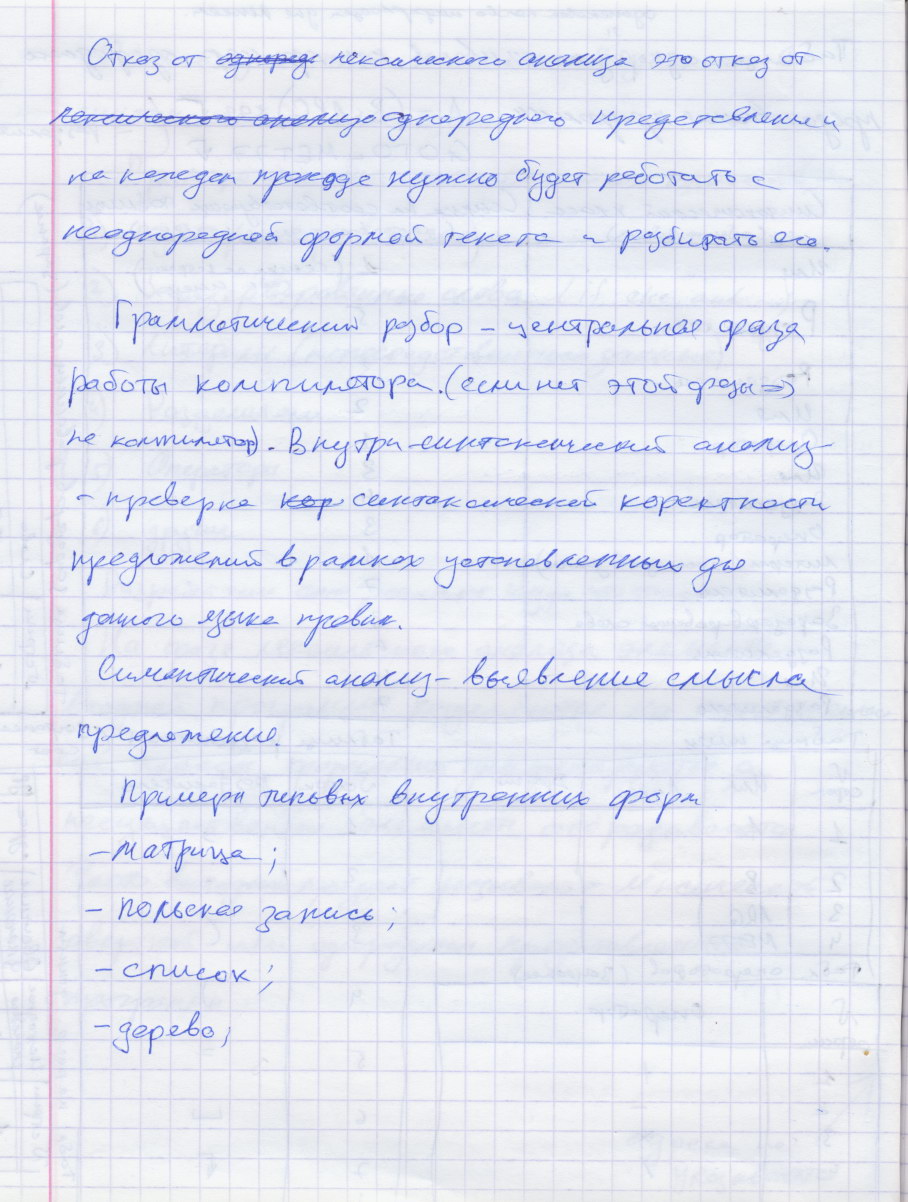 Отказ от однород лексического анализа это отказ от
лексического анализа однородного представления и
на каждом проходе нужно будет работать с
неоднородной формой текста и разбирать его.
Грамматический разбор – центральная фаза
работы компилятора. (если нет этой фазы =>
не компилятор). Внутри – синтаксический анализ –
– проверка кор синтаксической коректности
предложений в рамках установленных для
данного языка правил.
Симантический анализ – выявление смысла
предложения.
Примеры типовых внутренних форм
– матрица;
– польская запись;
– список;
– дерево;